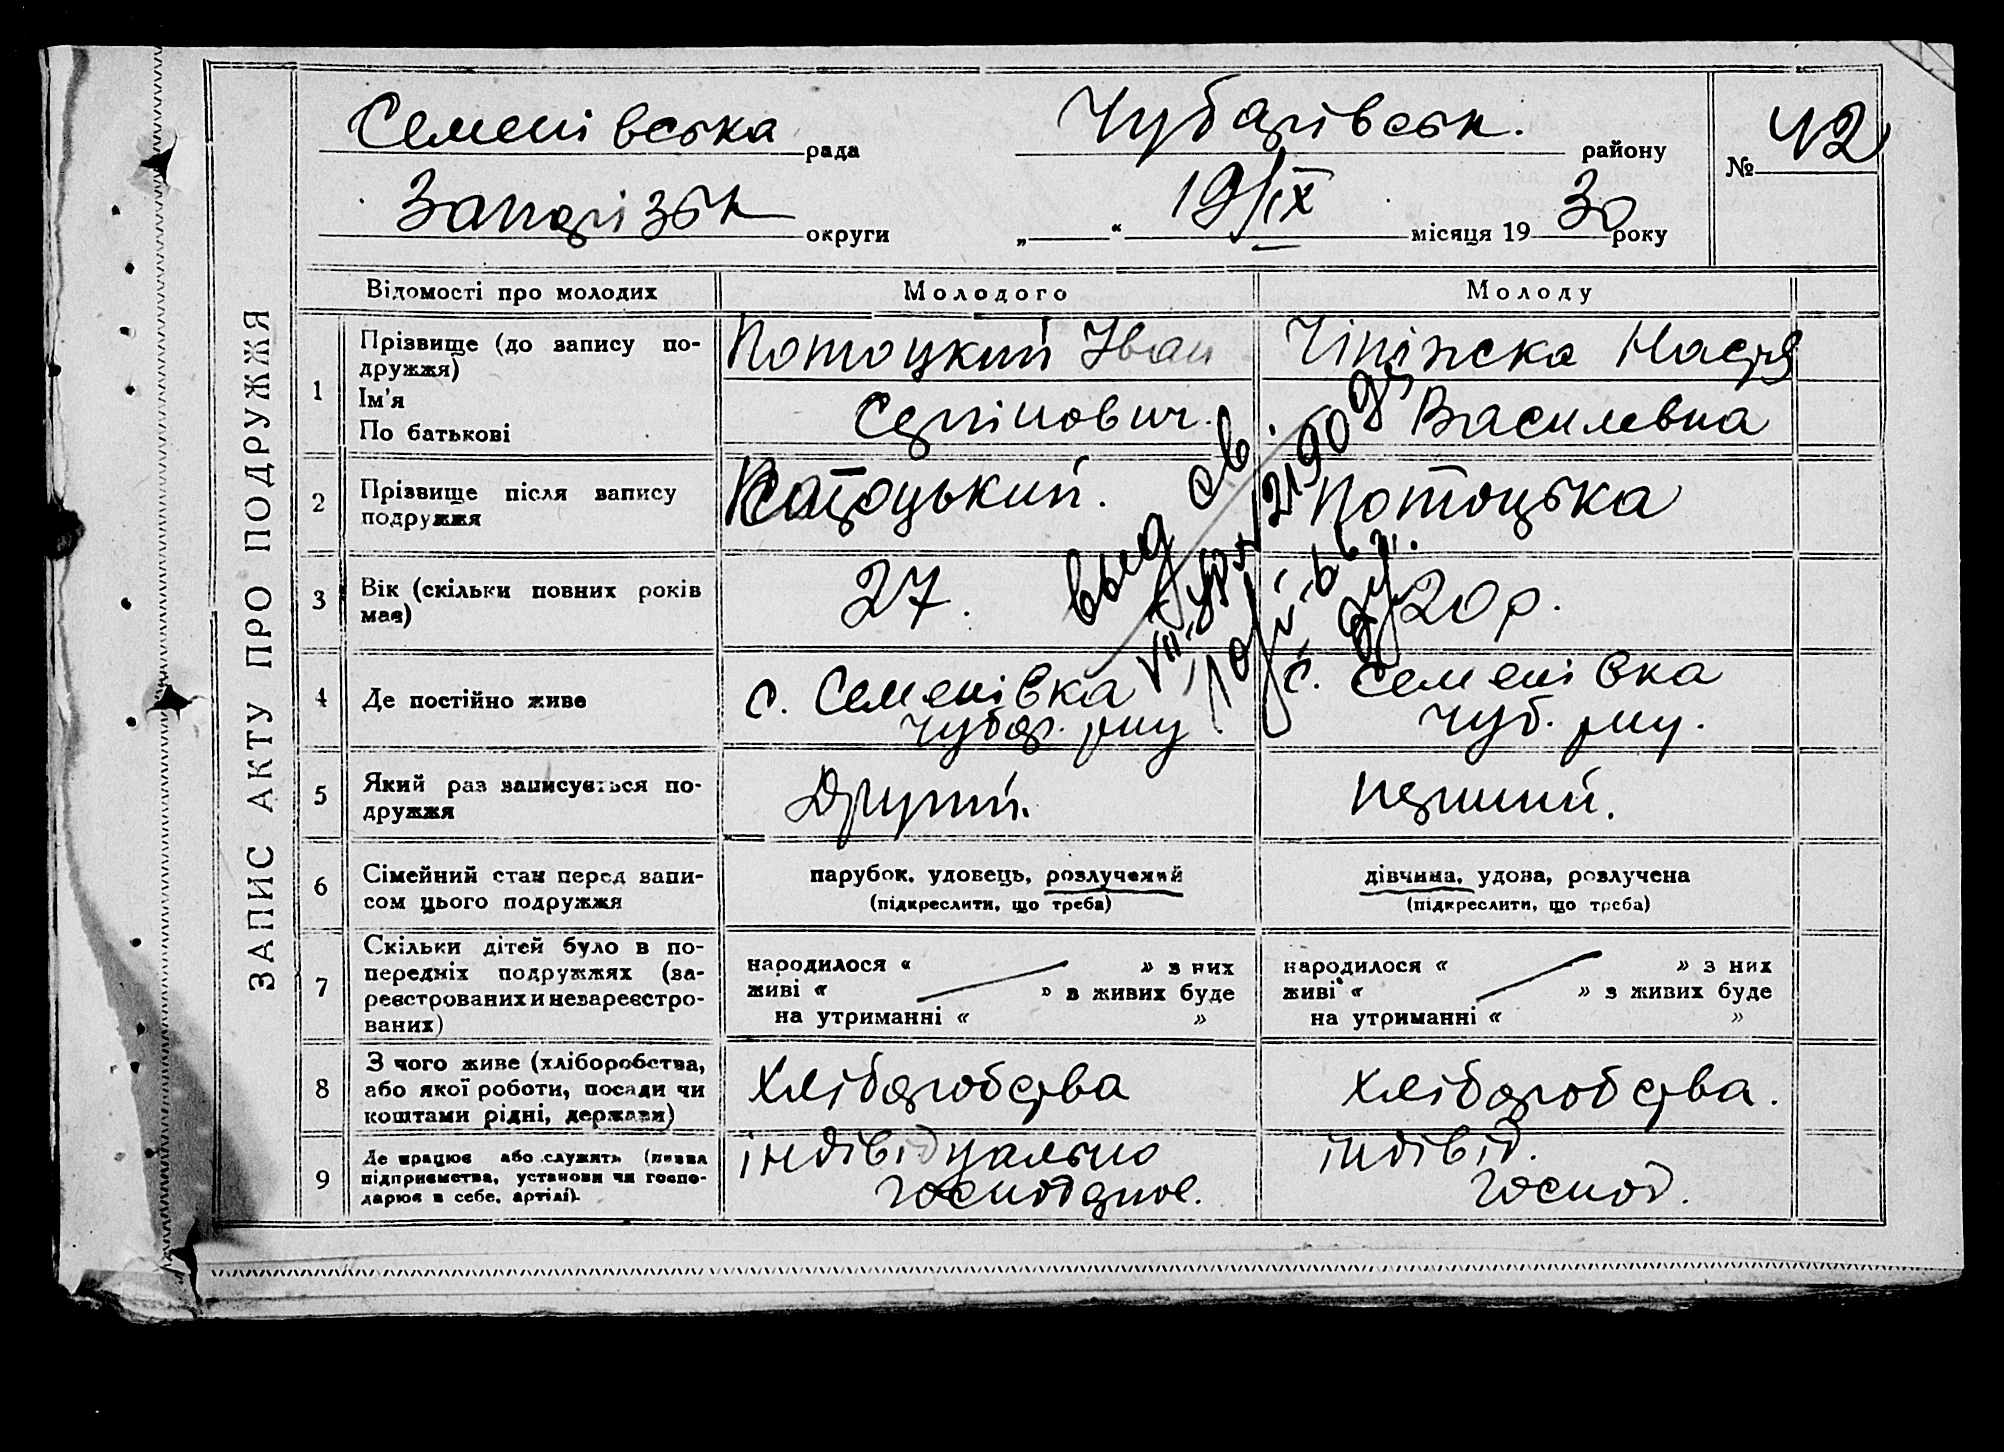 ЗАПИС АКТУ ПРО ПОДРУЖЖЯ
Семенівська рада
Чубарівськ. району
№ 42
Запорізьк округи
„ “ 19/IX місяця 1930 року
Відомості про молодих
Молодого
Молоду
1
Прізвище (до запису по-
дружжя)
Ім'я
По батькові
Потоцкий Іван
Чіпіжска Настя
Василевна
2
Прізвище після запису
подружжя
Потоцький.
Потоцька
3
Вік (скільки повних років
має)
27.
20 р.
выд св.
4
Де постійно живе
с. Семенівка
Чубар. р-ну
с. Семенівка
Чуб. р-ну.
5
Який раз записується по-
дружжя
Другий.
Перший.
6
Сімейний стан перед запи-
сом цього подружжя
парубок, удовець, розлучений
(підкреслити, що треба)
дівчина, удова, розлучена
(підкреслити, що треба)
7
Скільки дітей було в по-
передніх подружжях (за-
реєстрованих и незареєстро-
ваних)
народилося « » з них
живі « » в живих буде
на утриманні « »
народилося « » з них
живі « » з живих буде
на утриманні « »
8
З чого живе (хліборобства,
або якої роботи, посади чи
коштами рідні, держави)
хліборобства
хліборобства.
9
Де працює або служить (назва
підприємства, установи чи госпо-
дарює в себе, артілі).
індівідуально
господарює.
індівід.
господ.